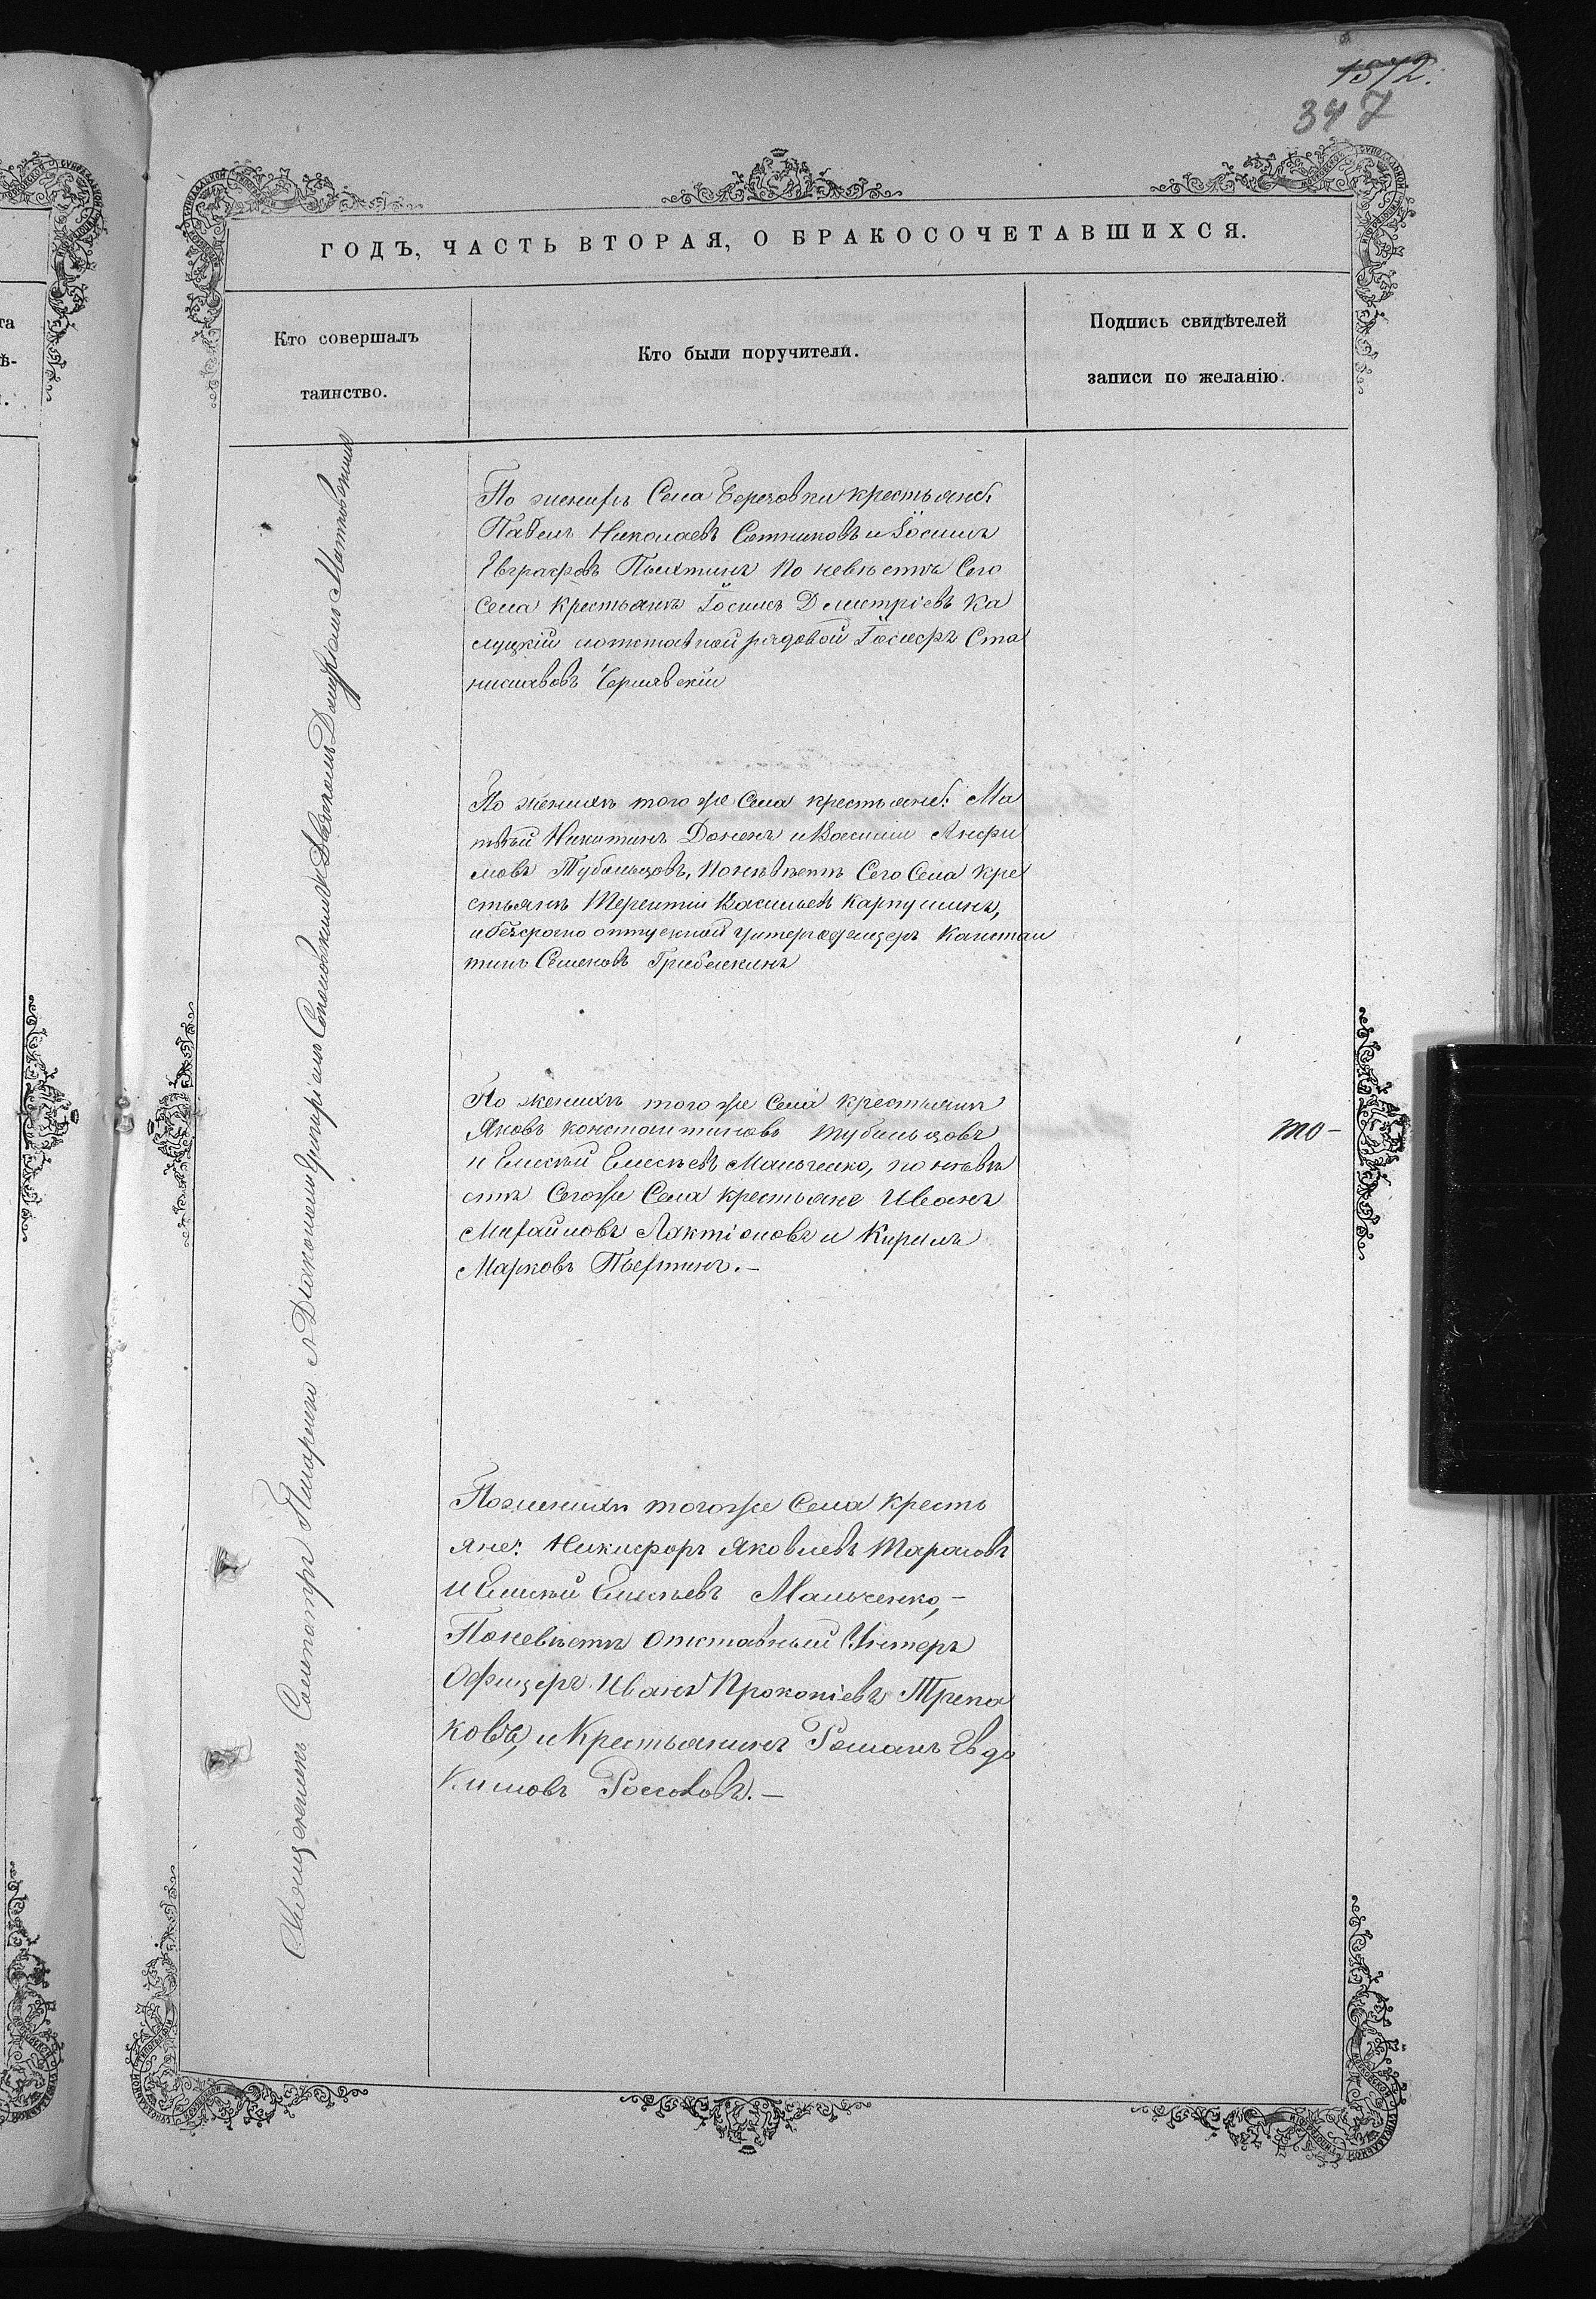 1572.
347
ГОДЪ, ЧАСТЬ ВТОРАЯ, О БРАКОСОЧЕТАВШИХСЯ.
Кто совершалъ
таинство.
Кто были поручители.
Подпись свидѣтелей
записи по желанію.
Священникъ Димитріемъ Соколовскимъ
По жениxѣ Села Березовки крестьянѣ:
Павелъ Николаевъ Сотниковъ и Іосифъ
Евграфовъ Пыхтинъ По невѣстѣ Сего
Села крестьянъ Іосифъ Дмитріевъ Ка
луцкій и отставной рядовой Іосифъ Ста
ниславовъ Чернявскій
По женихѣ того же Села крестьянѣ: Ма
твѣй Никитинъ Доненъ и Василій Анфи
мовъ Тубольцовъ, По невѣстѣ Сего Села кре
стьянъ Терентій Васильевъ Карпушинъ,
и безсрочно отпускной унтерофицеръ Констан
тинъ Семеновъ Грибенкинъ
По женихѣ того же Села крестьянъ
Яковъ Константиновъ Тубольцовъ
и Елисѣй Елисѣевъ Мальченко, по невѣ
стѣ Сегоже Села крестьяне Иванъ
Михайловъ Лактіоновъ и Кирилъ
Марковъ Пыхтинъ.—
По женихѣ тогоже Села кресть
яне: Никифоръ Яковлевъ Тарасовъ
и Елисѣй Елисѣевъ Мальченко,—
По невѣстѣ Отставный Унтеръ
Офицеръ Иванъ Прокопіевъ Трепа
ковъ, и Крестьянинъ Романъ Евдо
кимовъ Россоховъ.—
то-
та
ѣ-